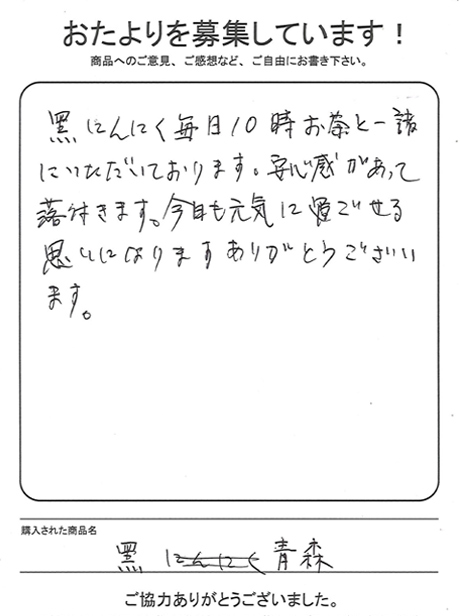 おたよりを募集しています！
商品へのご意見、ご感想など、ご自由にお書き下さい。
黒にんにく毎日10時お茶と一諸
にいただいております。安心感があって
落付きます。今日も元気に過ごせる
思いになりますありがとうございい
ます。
購入された商品名
黒 にんにく 青森
ご協力ありがとうございました。